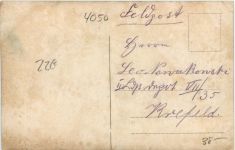 4050
Feldpost
Herrn
Leo Nowakowski
VII/35
Krefeld
220
35-